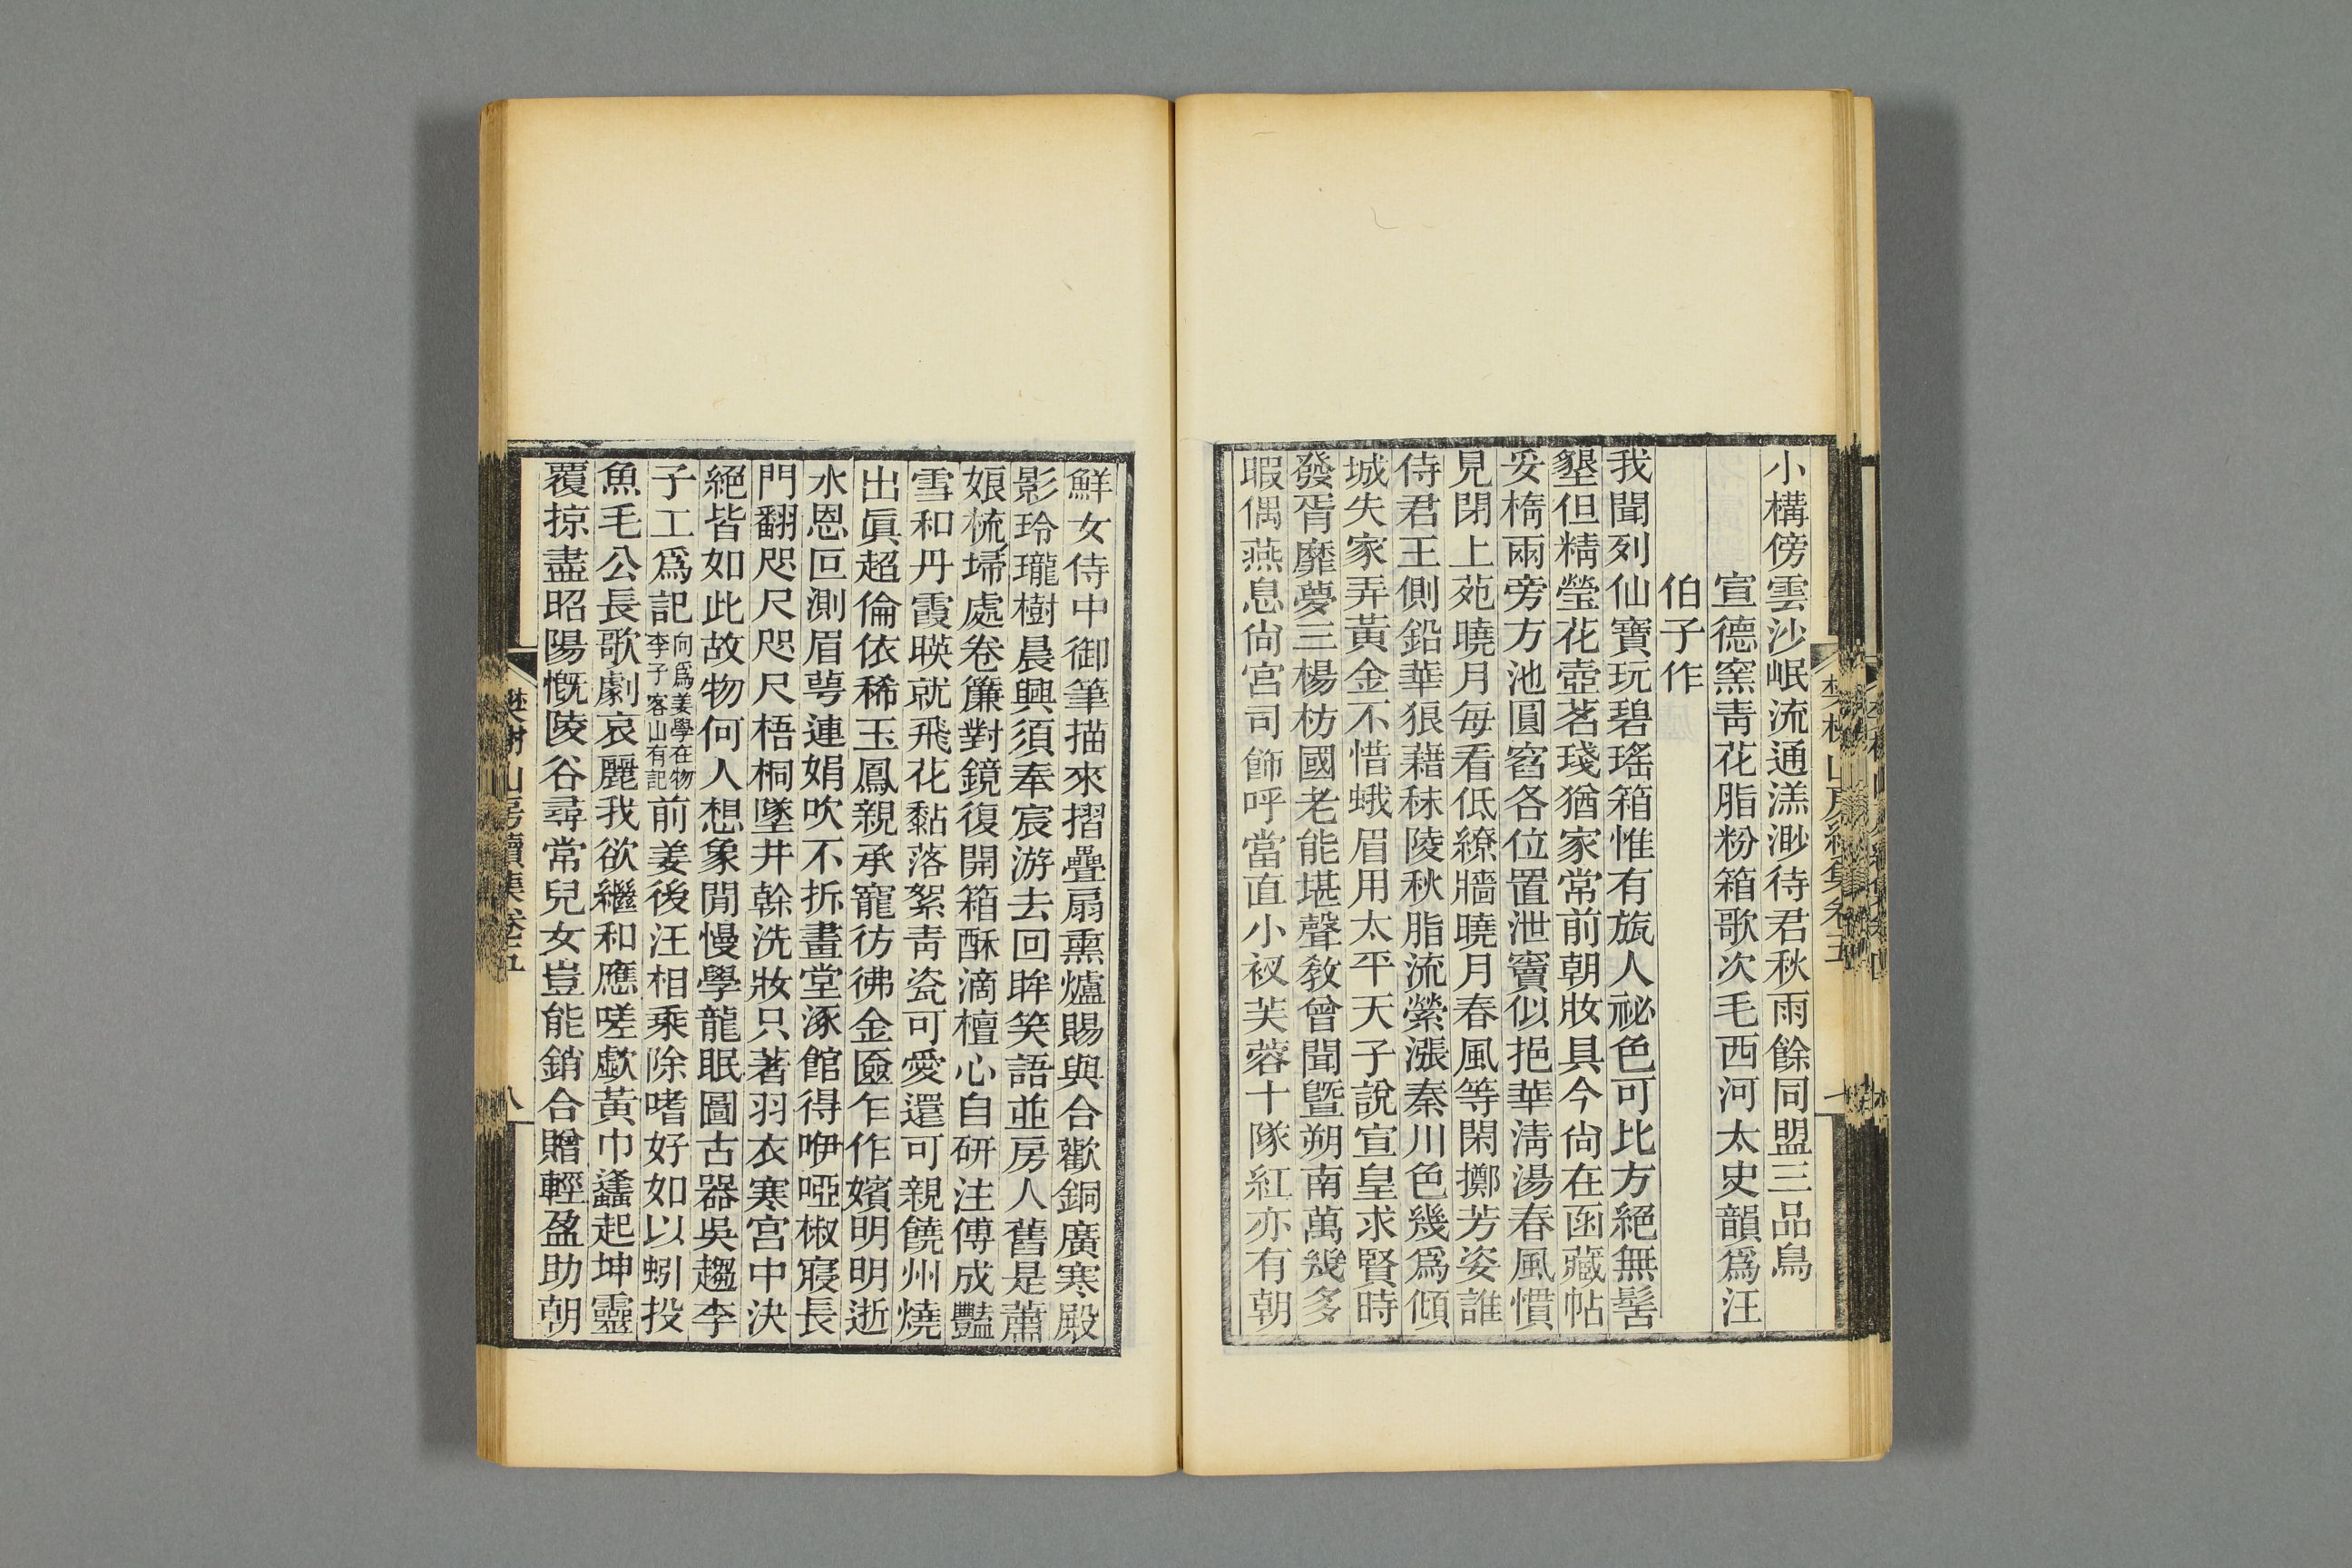 小構傍雲沙岷流通漾渺待君秋雨餘同盟三品鳥
宣德窯靑花脂粉箱歌次毛西河太史韻爲汪
伯子作
我聞列仙寶玩碧瑤箱惟有旊人祕色可比方絕無髺
墾但精瑩花壺茗琖猶家常前朝妝具今尙在函藏帖
妥橢兩旁方池圓窞各位置泄竇似挹華淸湯春風慣
見閉上苑曉月每看低繚牆曉月春風等閑擲芳姿誰
侍君王側鉛華狠藉秣陵秋脂流縈漲秦川色幾爲傾
城失家弄黃金不惜蛾眉用太平天子說宣皇求賢時
發胥靡夢三楊枋國老能堪聲敎曾聞曁朔南萬幾多
暇偶燕息尙宮司飾呼當直小衩芙蓉十隊紅亦有朝
鮮女侍中御筆描來摺疊扇熏爐賜與合歡銅廣寒殿
影玲瓏樹晨興須奉宸游去回眸笑語並房人舊是蕭
娘梳埽處卷簾對鏡復開箱酥滴檀心自硏注傅成豔
雪和丹霞暎就飛花黏落絮靑瓷可愛還可親饒州燒
出眞超倫依稀玉鳳親承寵彷彿金匳乍作嬪明明逝
水恩叵測眉萼連娟吹不拆畫堂涿館得咿啞椒寢長
門翻咫尺咫尺梧桐墜井榦洗妝只著羽衣寒宮中決
絕皆如此故物何人想象閒慢學龍眠圖古器吳趨李
子工爲記向爲姜學在物李子客山有記前姜後汪相乘除嗜好如以蚓投
魚毛公長歌劇哀麗我欲繼和應嗟歔黃巾逢起坤靈
覆掠盡昭陽慨陵谷尋常兒女豈能銷合贈輕盈助朝
樊榭山房續集卷五
八